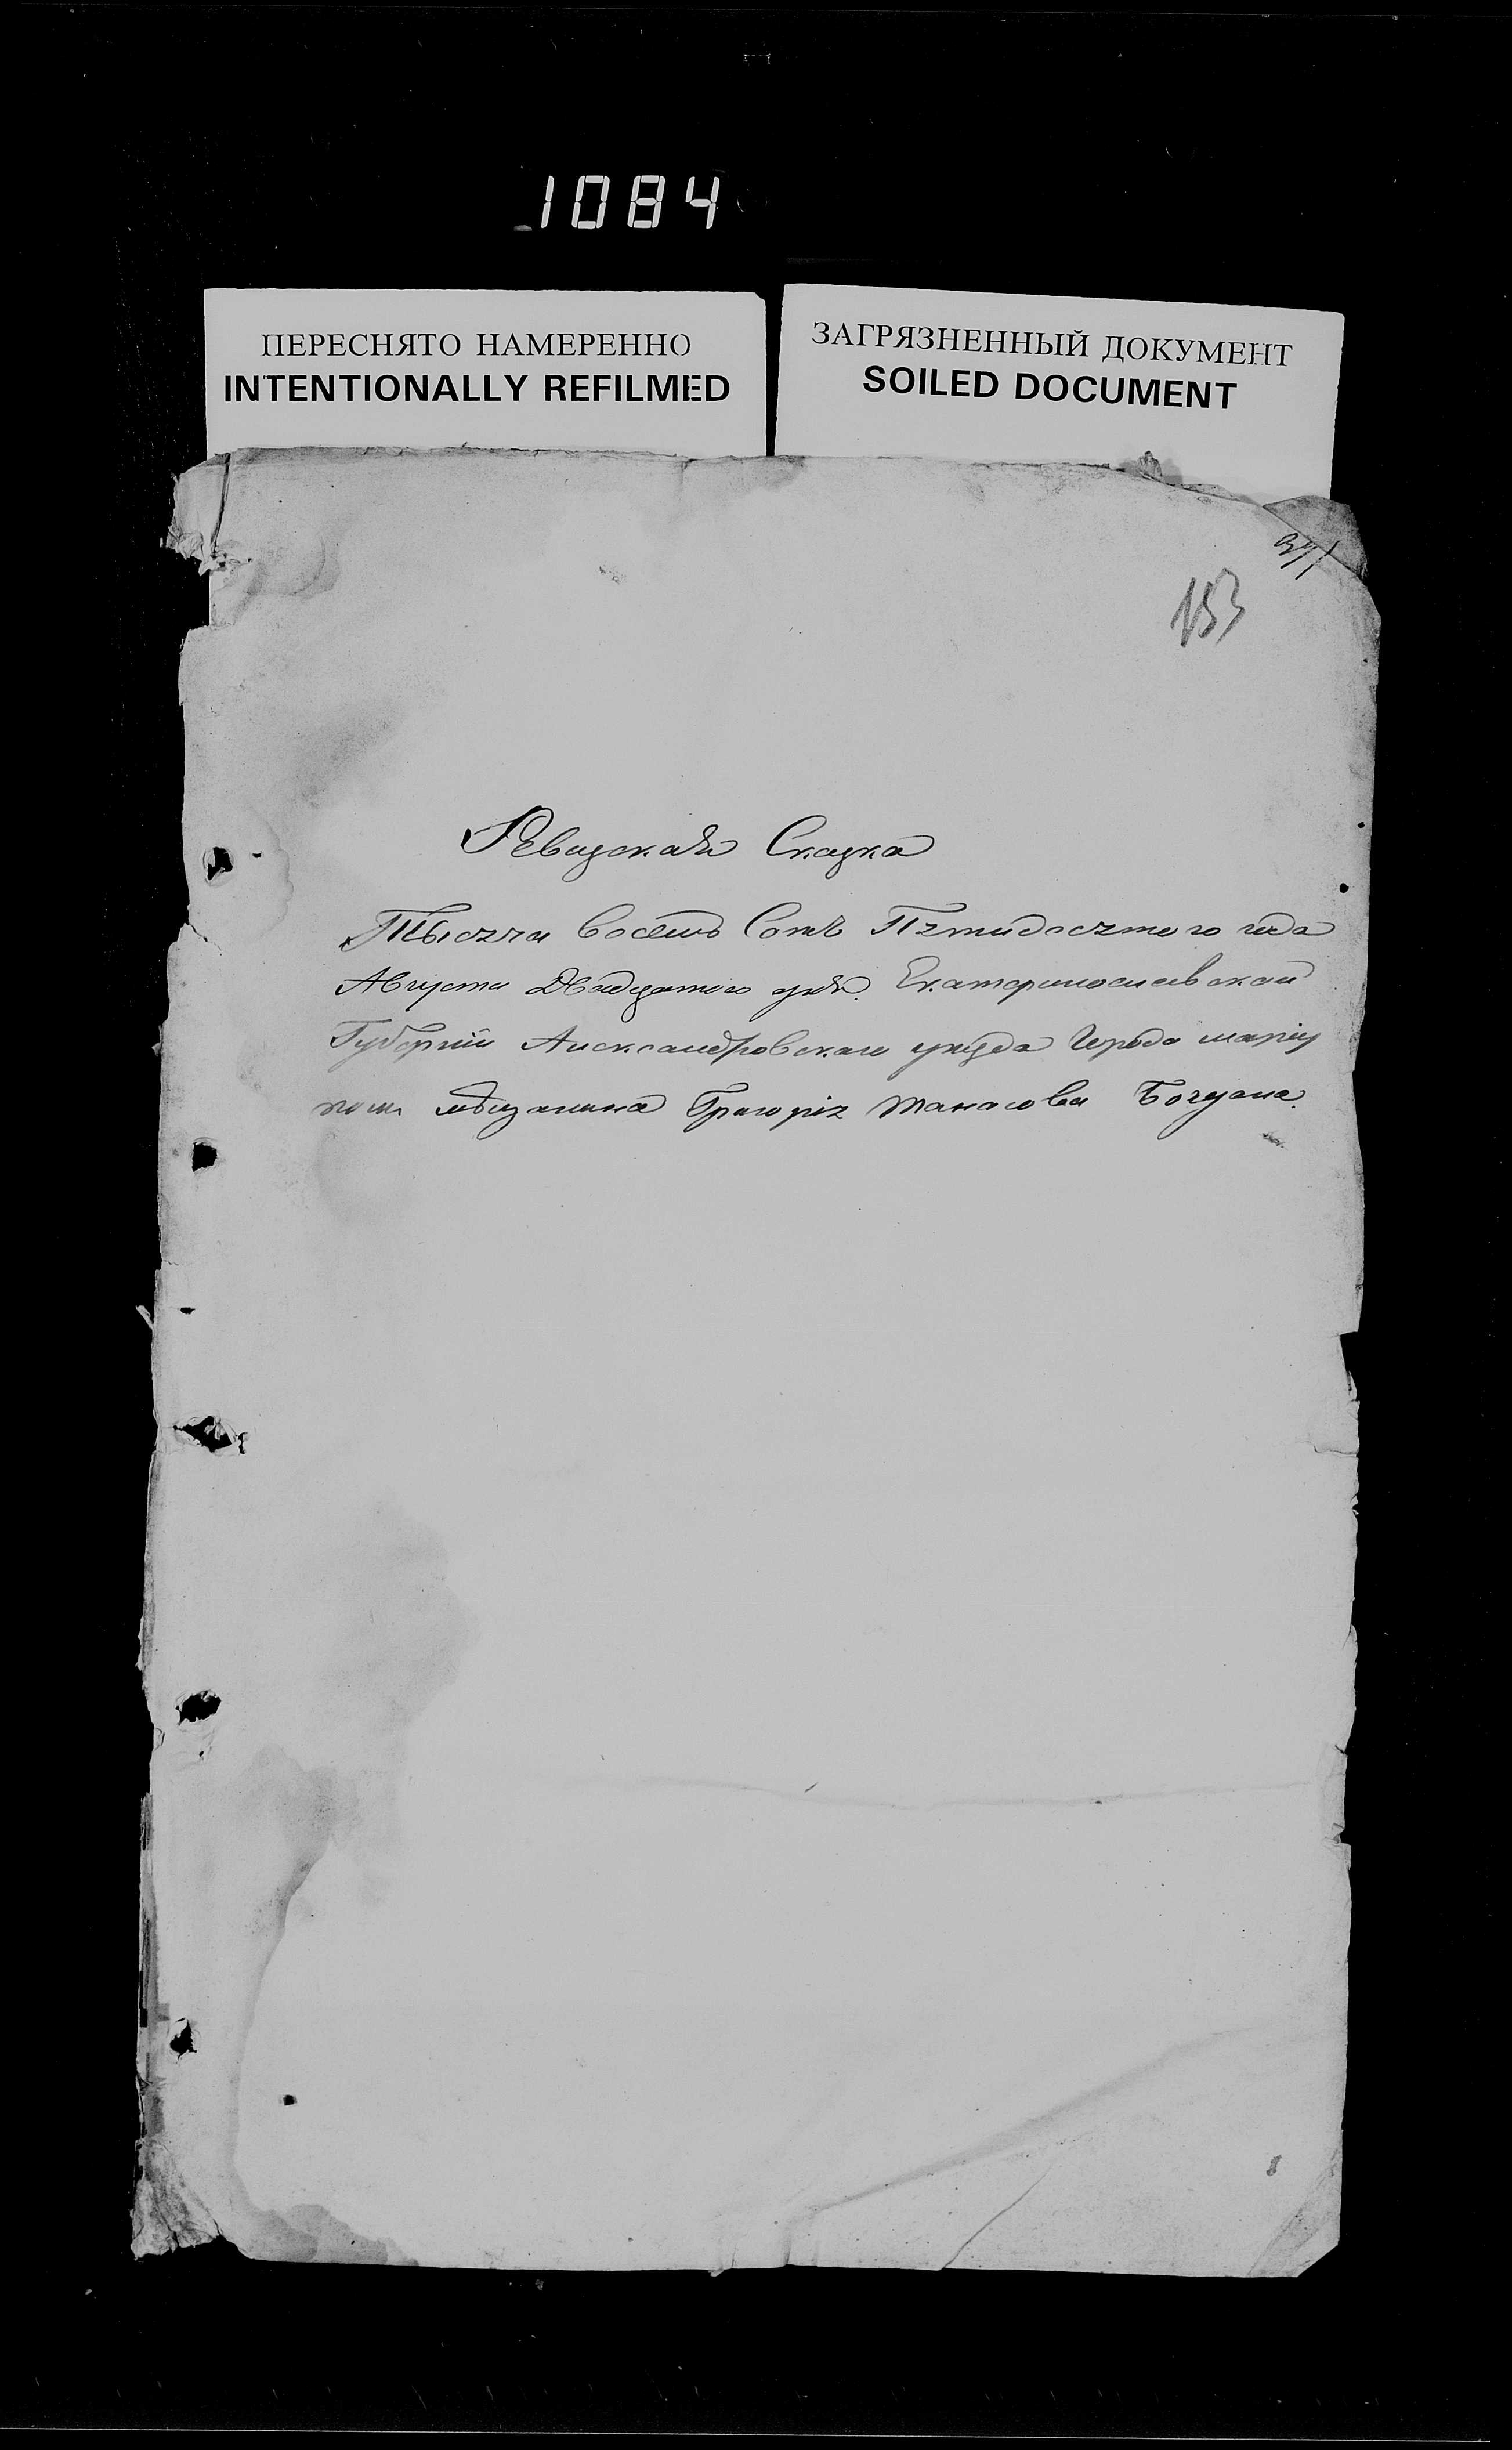 1084
ПЕРЕСНЯТО НАМЕРЕННО
INTENTIONALLY REFILMED
ЗАГРЯЗНЕННЫЙ ДОКУМЕНТ
SOILED DOCUMENT
153
Ревизская Сказка
Тысяча восемь Сотъ Пятидесятого года
Августа Двадцатого дня. Екатеринославской
Губерніи Александровскаго уѣзда Города маріу
поля мѣщанина Григорія Танасова